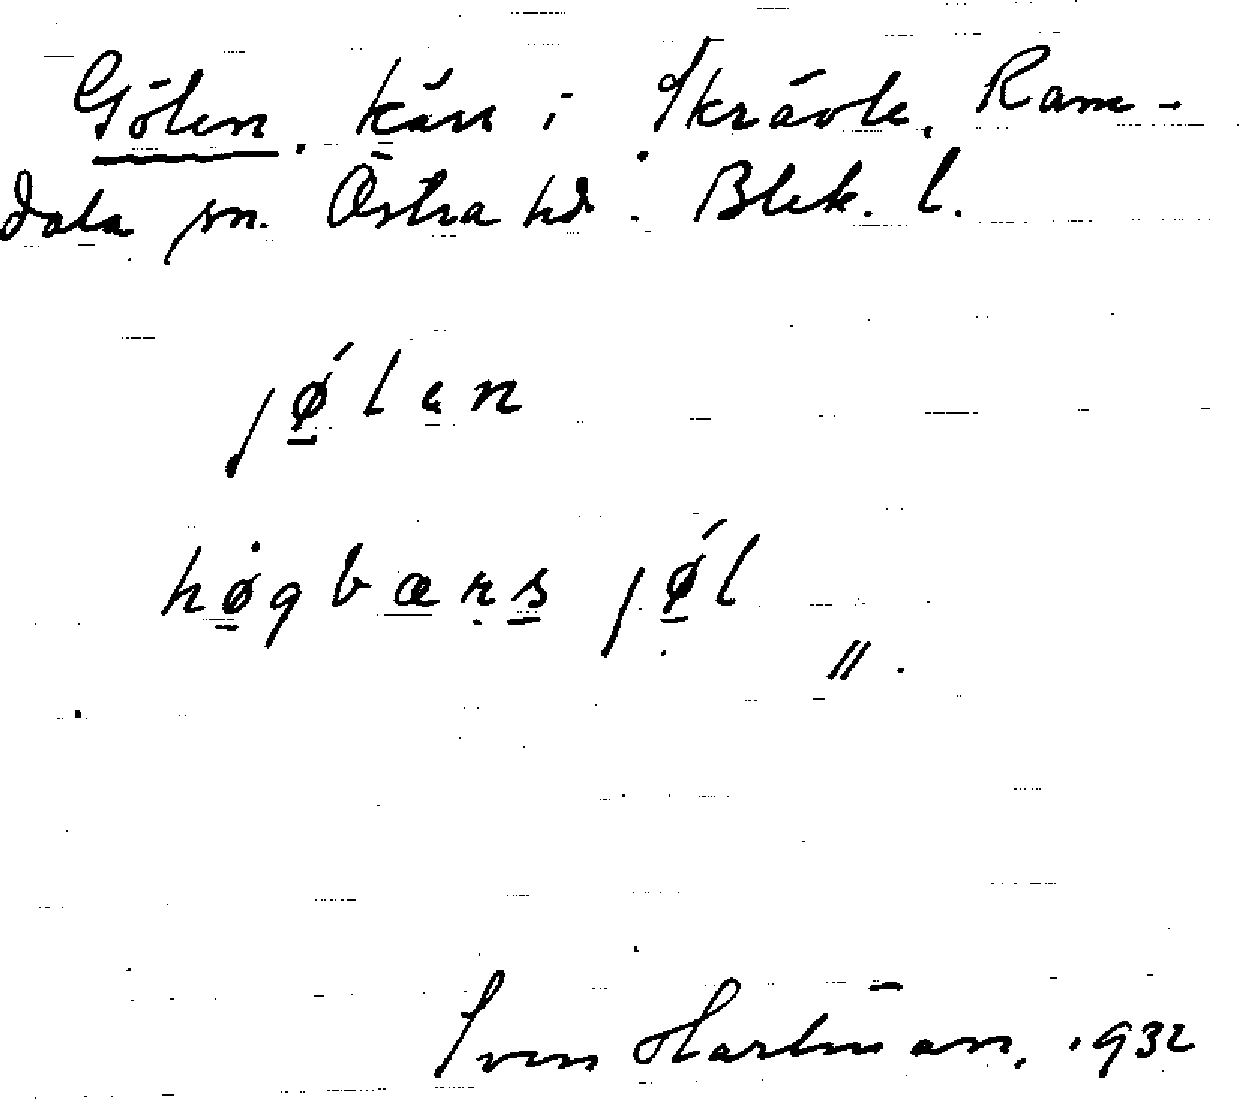 Gölen. kärr i Skrävle, Ram-
dala sn. Östra hd. Blek. l.
jǿ̱lɛn
hø̱gbærs jǿ̱l
〃.
Sven Hartman, 1932